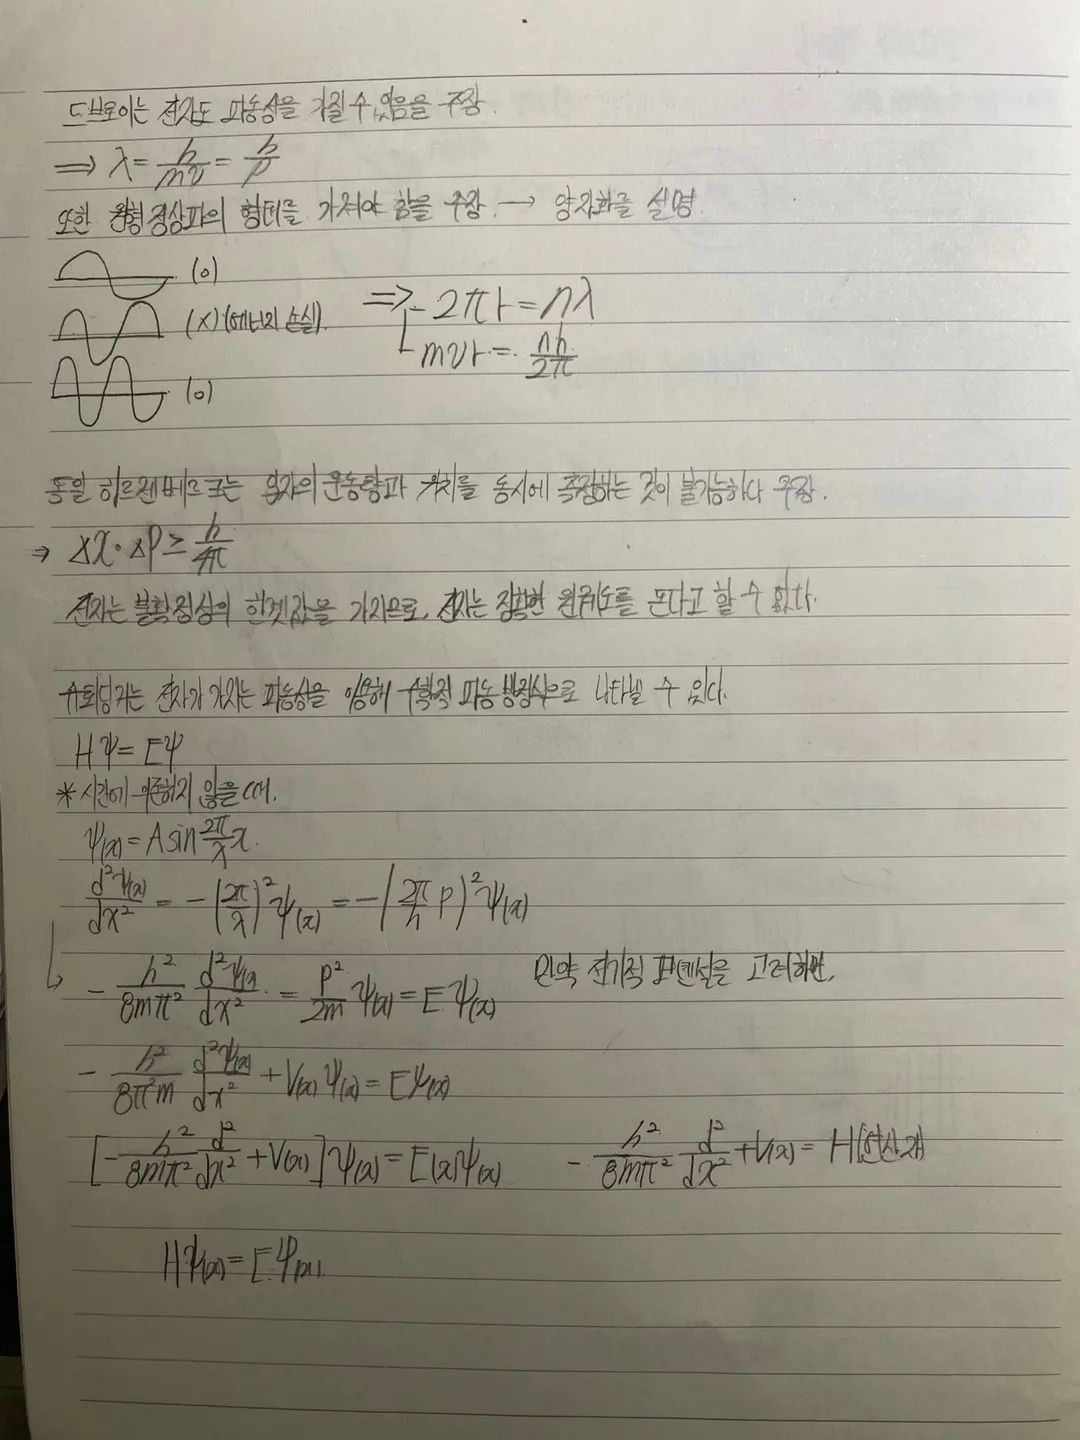 드브로이는 전자도 파동성을 가질 수 있음을 주장.
⇒ λ = h/mv = h/p
또한 원형 정상파의 형태를 가져야 함을 주장. → 양자화를 설명.
(o)
(x) (에너지 손실).
(o)
⇒ - 2πr = nλ
- mvr = nh/2π
독일 하르젠베르크는 입자의 운동량과 위치를 동시에 측정하는 것이 불가능하다 주장.
⇒ Δx·ΔP ≥ h/4π
전자는 불확정성의 한곗값을 가지므로, 전자는 정확한 원궤도를 돈다고 할 수 없다.
슈뢰딩거는 전자가 가지는 파동성을 이용해 수학적 파동 방정식으로 나타낼 수 있다.
Hψ = Eψ
* 시간에 의존하지 않을 때.
ψ(x) = A sin 2π/λ x.
d²ψ(x)/dx² = -(2π/λ)² ψ(x) = -(2π/h P)² ψ(x)
- h²/8mπ² d²ψ(x)/dx² = P²/2m ψ(x) = E ψ(x)
만약 전기적 포텐셜을 고려하면,
- h²/8π²m d²ψ(x)/dx² + V(x) ψ(x) = Eψ(x)
[- h²/8mπ² d²/dx² + V(x)] ψ(x) = E(x)ψ(x)
- h²/8mπ² d²/dx² + V(x) = H (연산자)
Hψ(x) = Eψ(x)